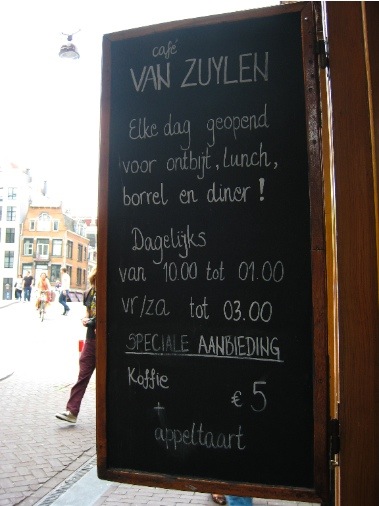 café
VAN ZUYLEN
Elke dag geopend
voor ontbijt, lunch,
borrel en diner!
Dagelijks
van 10.00 tot 01.00
vr/za tot 03.00
SPECIALE AANBIEDING
Koffie
€ 5
+
appeltaart